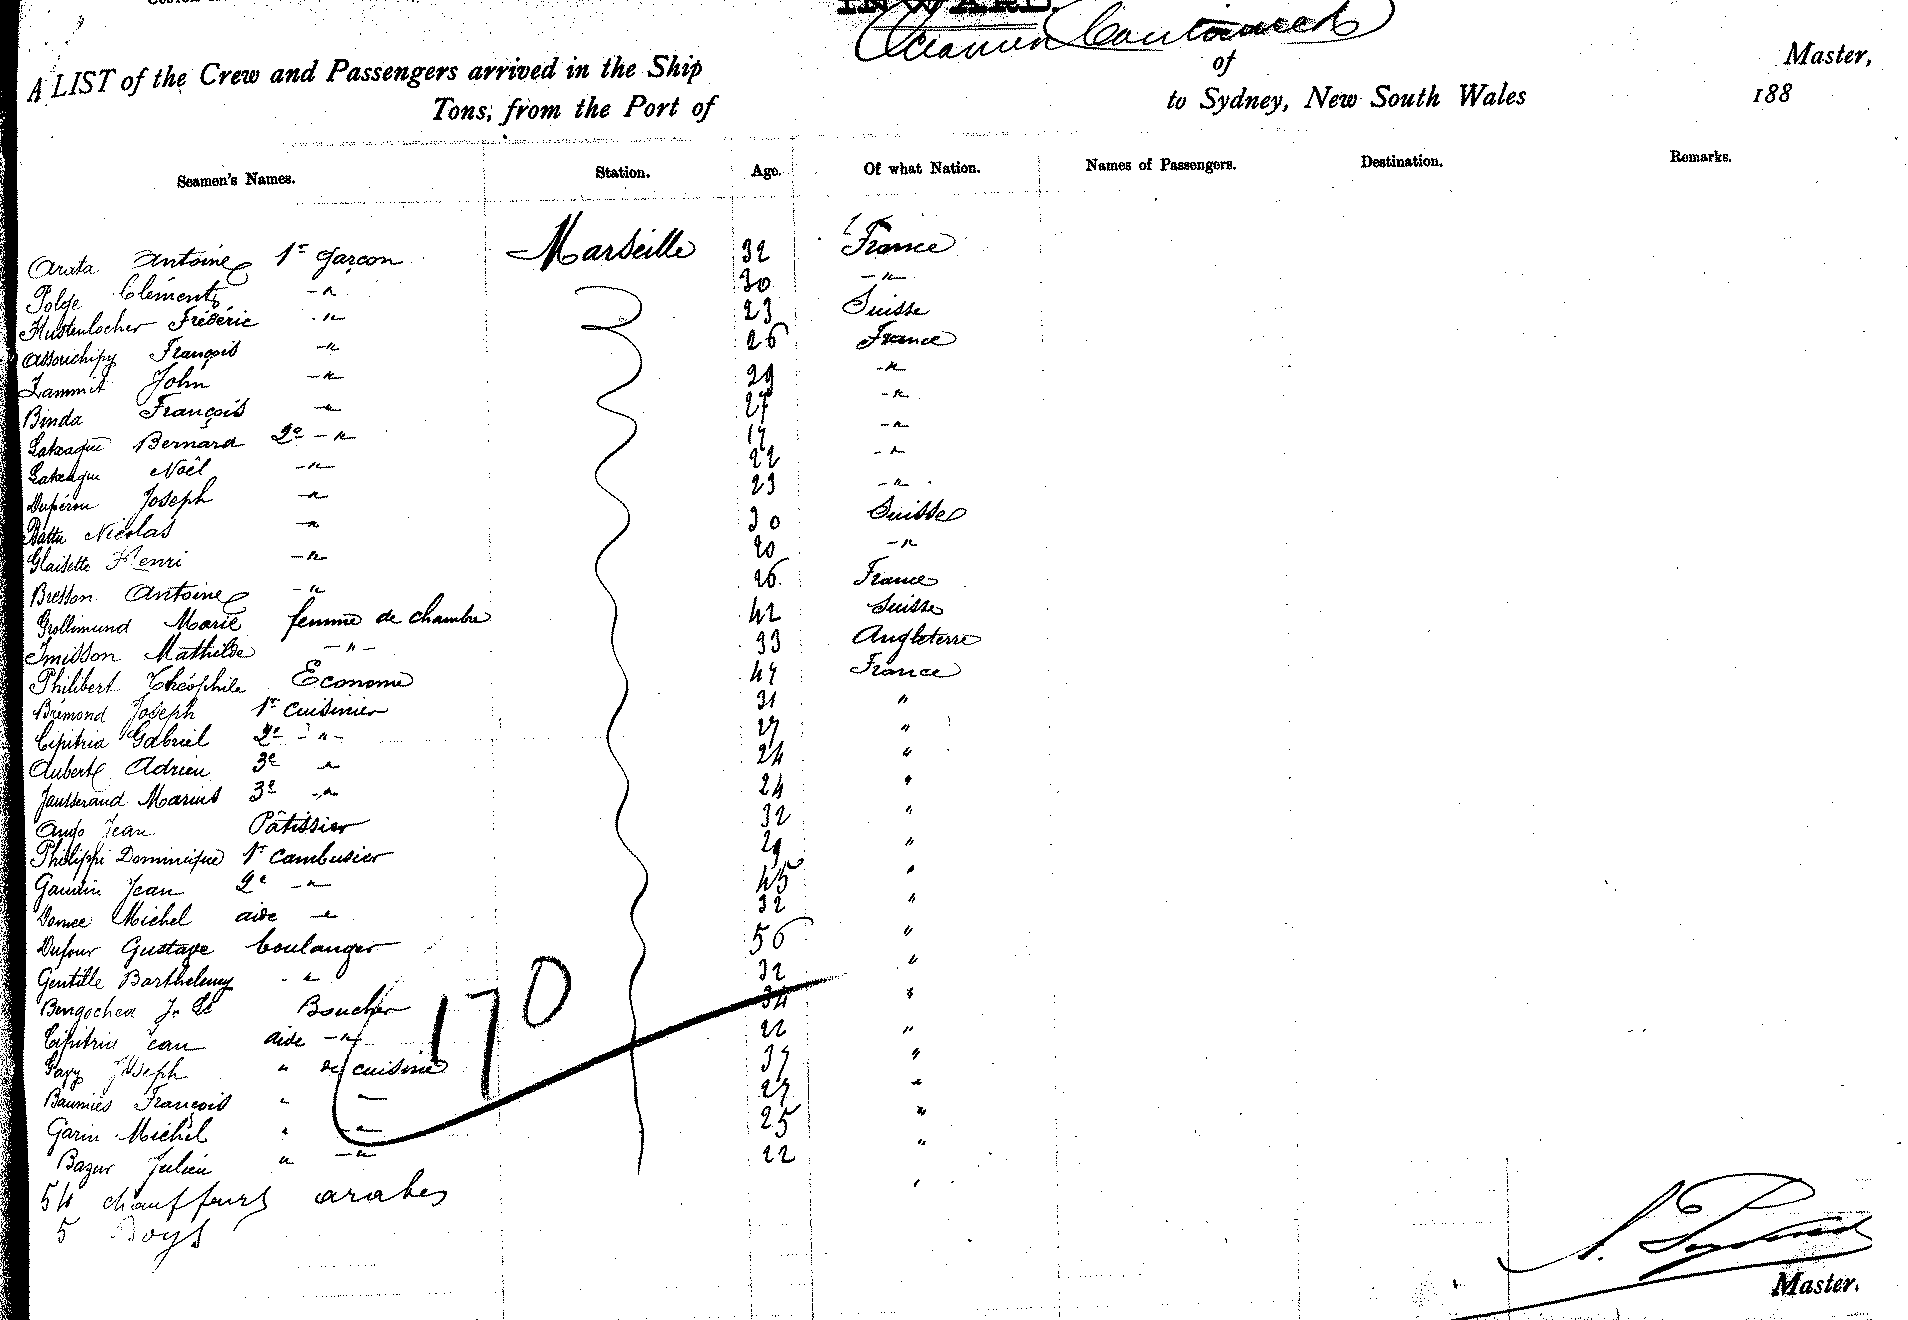 INWARD.
Océanien Continued
A LIST of the Crew and Passengers arrived in the Ship of Master,
Tons, from the Port of to Sydney, New South Wales 188
Seamen's Names. Station. Age. Of what Nation. Names of Passengers. Destination. Remarks.
Arata Antoine 1er garçon Marseille 32 France
Polge Clément -"- 30 -"-
Hustenlocher Frédéric -"- 23 Suisse
François -"- 26 France
Zammit John -"- 29 -"-
Binda François -"- 27 -"-
Bernard 2e -"- 17 -"-
Noël -"- 22 -"-
Dupérou Joseph -"- 23 -"-
Batta Nicolas -"- 30 Suisse
Glaisette Henri -"- 20 -"-
Bresson Antoine -"- 26 France
Grollimund Marie femme de chambre 42 Suisse
Imisson Mathilde -"- 33 Angleterre
Philibert Théophile Econome 47 France
Brémond Joseph 1er cuisinier 31 "
Cipitria Gabriel 2e -"- 27 "
Aubert Adrien 3e -"- 24 "
Jausserand Marius 3e -"- 24 "
Jean Pâtissier 32 "
Philippi Dominique 1er cambusier 29 "
Jean 2e -"- 45 "
Michel aide -"- 32 "
Dufour Gustave boulanger 56 "
Gentille Barthelemy -"- 32 "
Bengochea Jn Boucher 34 "
Cipitria Jean aide -"- 22 "
170
Joseph " de cuisine 37 "
Baumies François " -"- 27 "
Garin Michel " -"- 25 "
Bazur Julien " -"- 22 "
54 chauffeurs arabes "
5 Boys
Master.